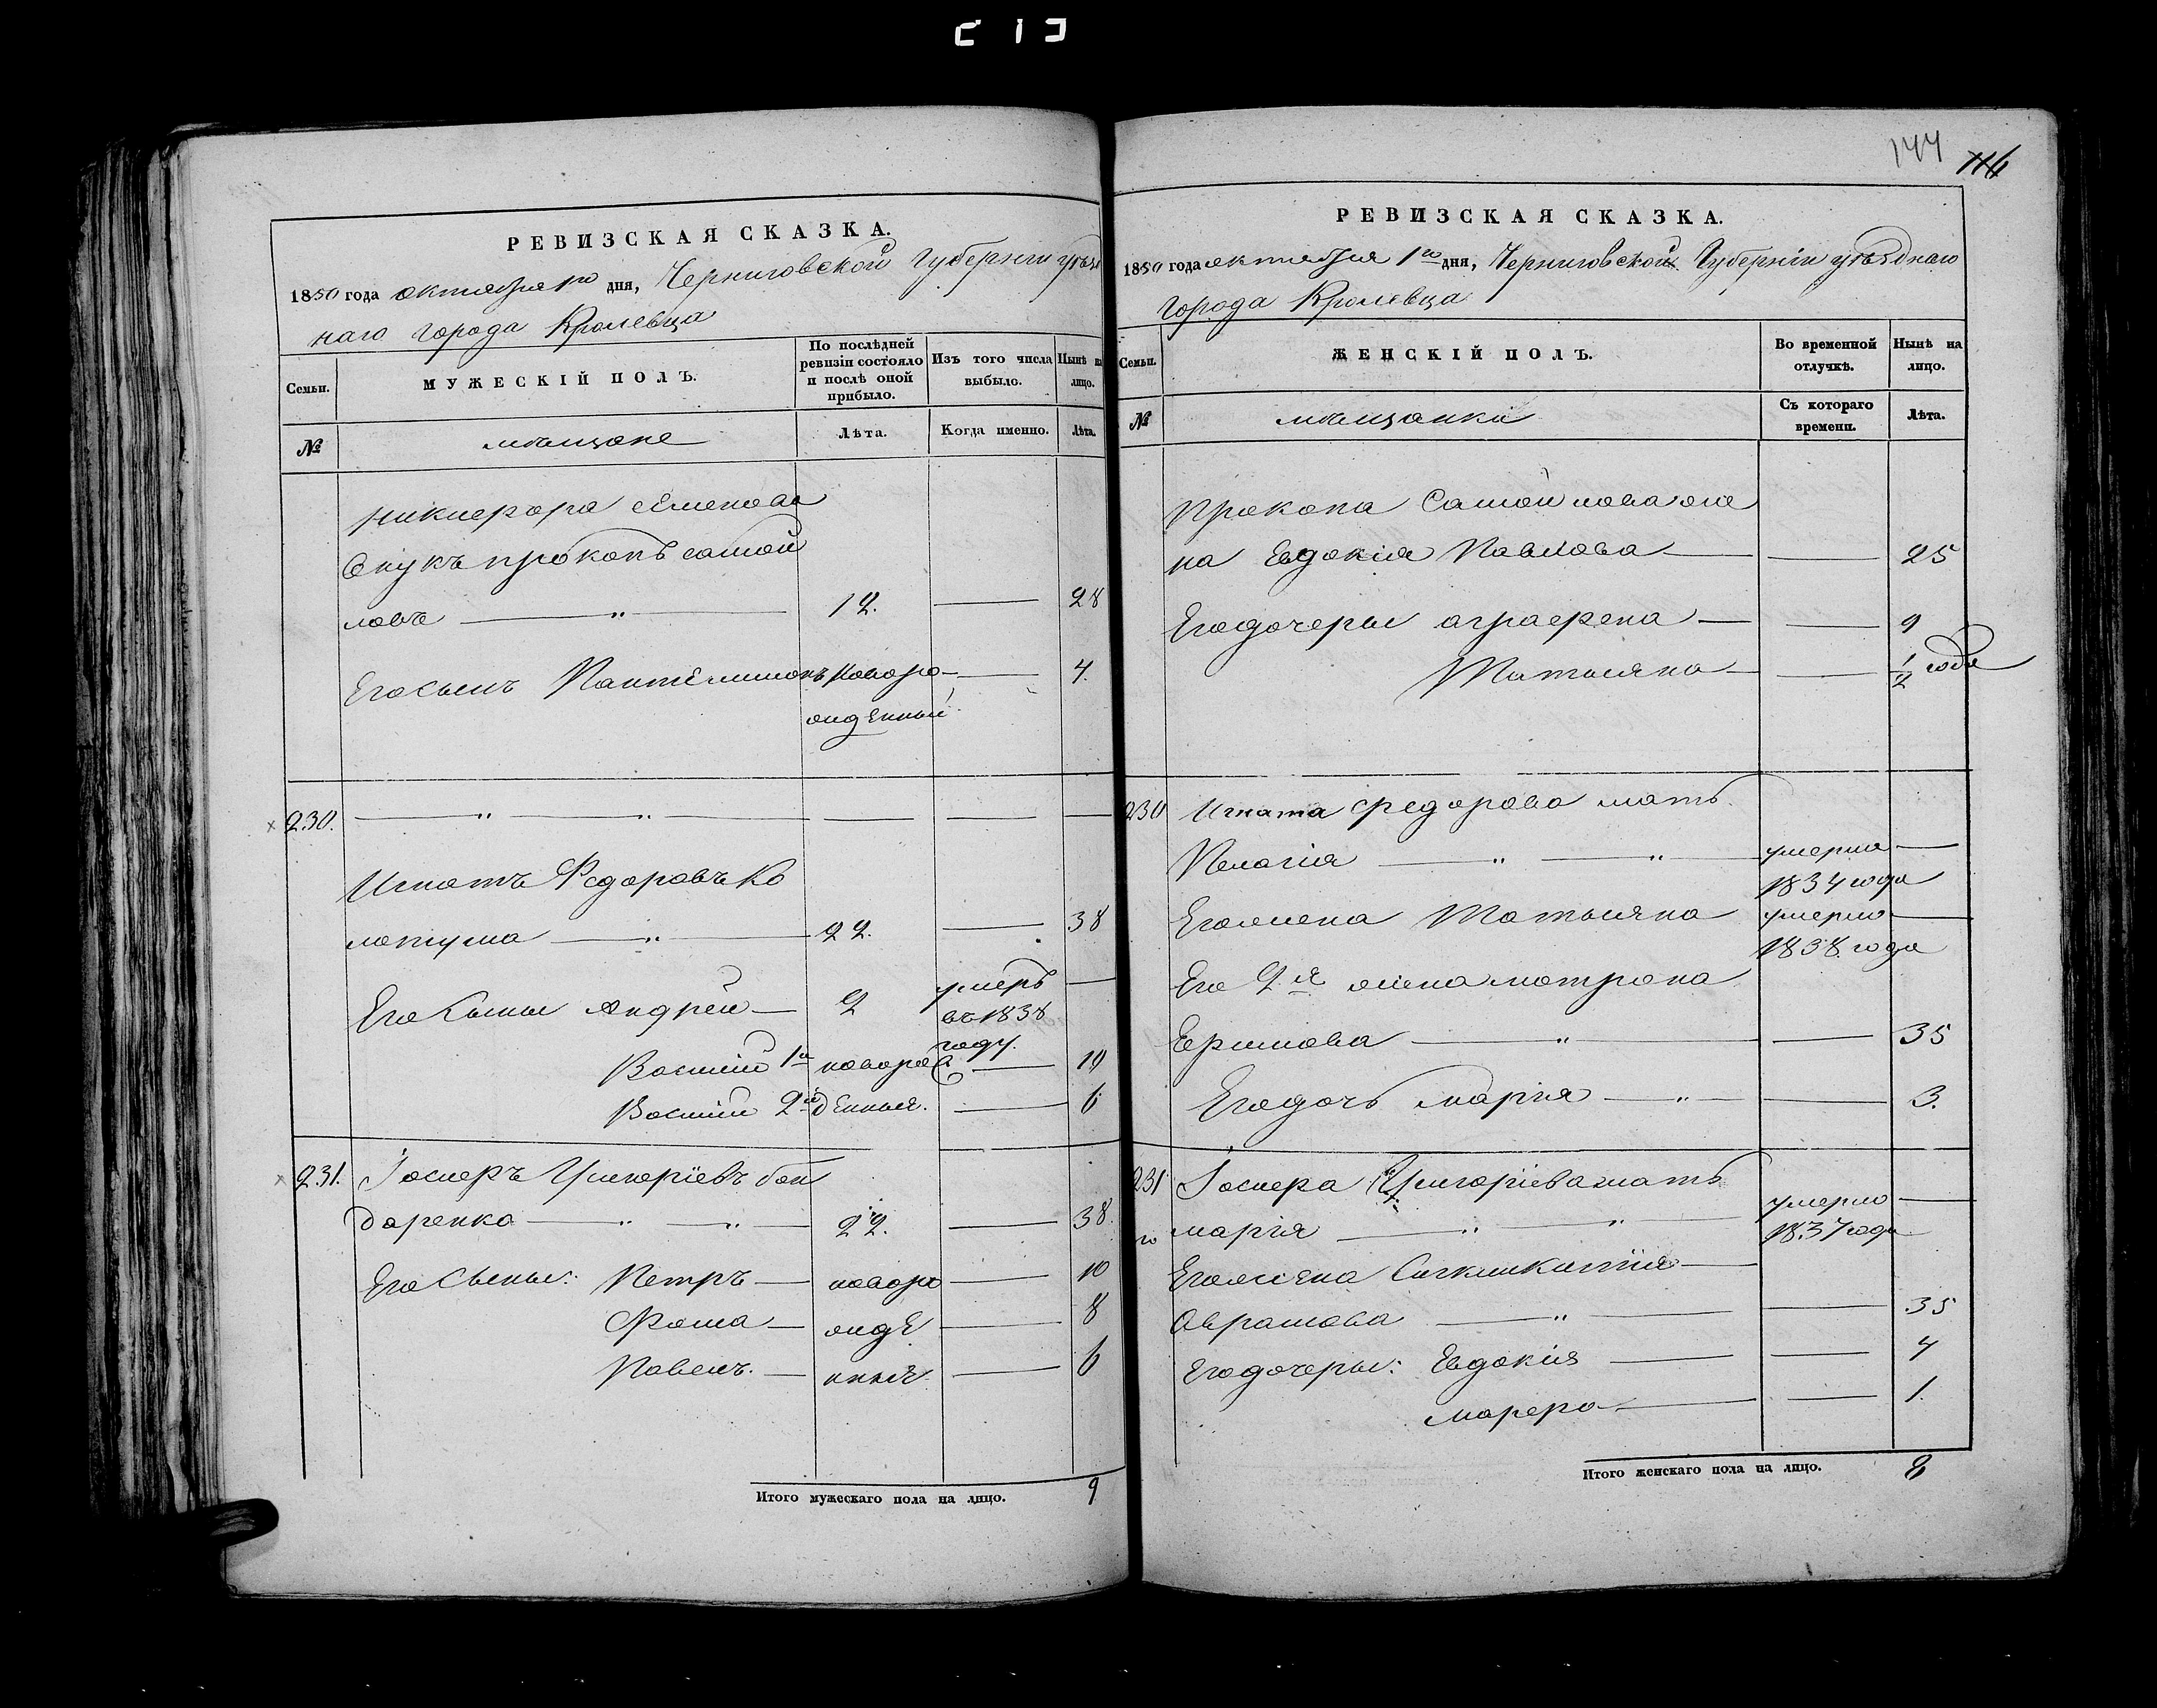 144 116
РЕВИЗСКАЯ СКАЗКА.
1850 года октября 1го дня, Черниговской Губернiи уѣзд
наго города Кролевца
Семьи.
МУЖЕСКIЙ ПОЛЪ.
По послѣдней ревизiи состояло и послѣ оной прибыло.
Изъ того числа выбыло.
Нынѣ на лицо.
№
мѣщане
Лѣта.
Когда именно.
Лѣта.
Никифора Семенова
внукъ прокопъ самой
ловъ — " — 12. — 28
Его сынъ Пантелимонъ новоро — 4.
жденный
230. — " — " — — — —
Игнатъ Федоровъ Ко
лотуша — " — 22. — 38
Его Сыны Андрей — 2 умеръ —
въ 1838
году.
Василiй 1й новоро — 10
Василiй 2й денныя. — 6
231. Iосифъ Григорiевъ бон
даренко — " — " — 22. — 38.
Его Сыны: Петръ — новоро — 10
Фома — жде — 8
Павелъ. — нныя — 6
Итого мужескаго пола на лицо. 9
РЕВИЗСКАЯ СКАЗКА.
1850 года октября 1го дня, Черниговской Губернiи уѣзднаго
города Кролевца
Семьи.
ЖЕНСКIЙ ПОЛЪ.
Во временной отлучкѣ.
Нынѣ на лицо.
№
мѣщанки
Съ котораго времени.
Лѣта.
Прокопа Самойлова же
на Евдокiя Павлова — — 25
Его дочеры аграфена — — 9
Татьяна — — 1/2 года
230 Игната федорова мать
Пелагiя — " — " — умерла —
1834 года
Его жена Татьяна умерла —
1838 года
Его 2я жена матрона
Ефимова — " — — 35
Его дочь марiя — " — — 3.
231 Iосифа Григорiева мать
марiя — " — " — умерла —
1837 года
Его жена
Аврамова — " — — 35
Его дочеры: Евдокiя — — 4
марфа — — 1.
Итого женскаго пола на лицо. 8